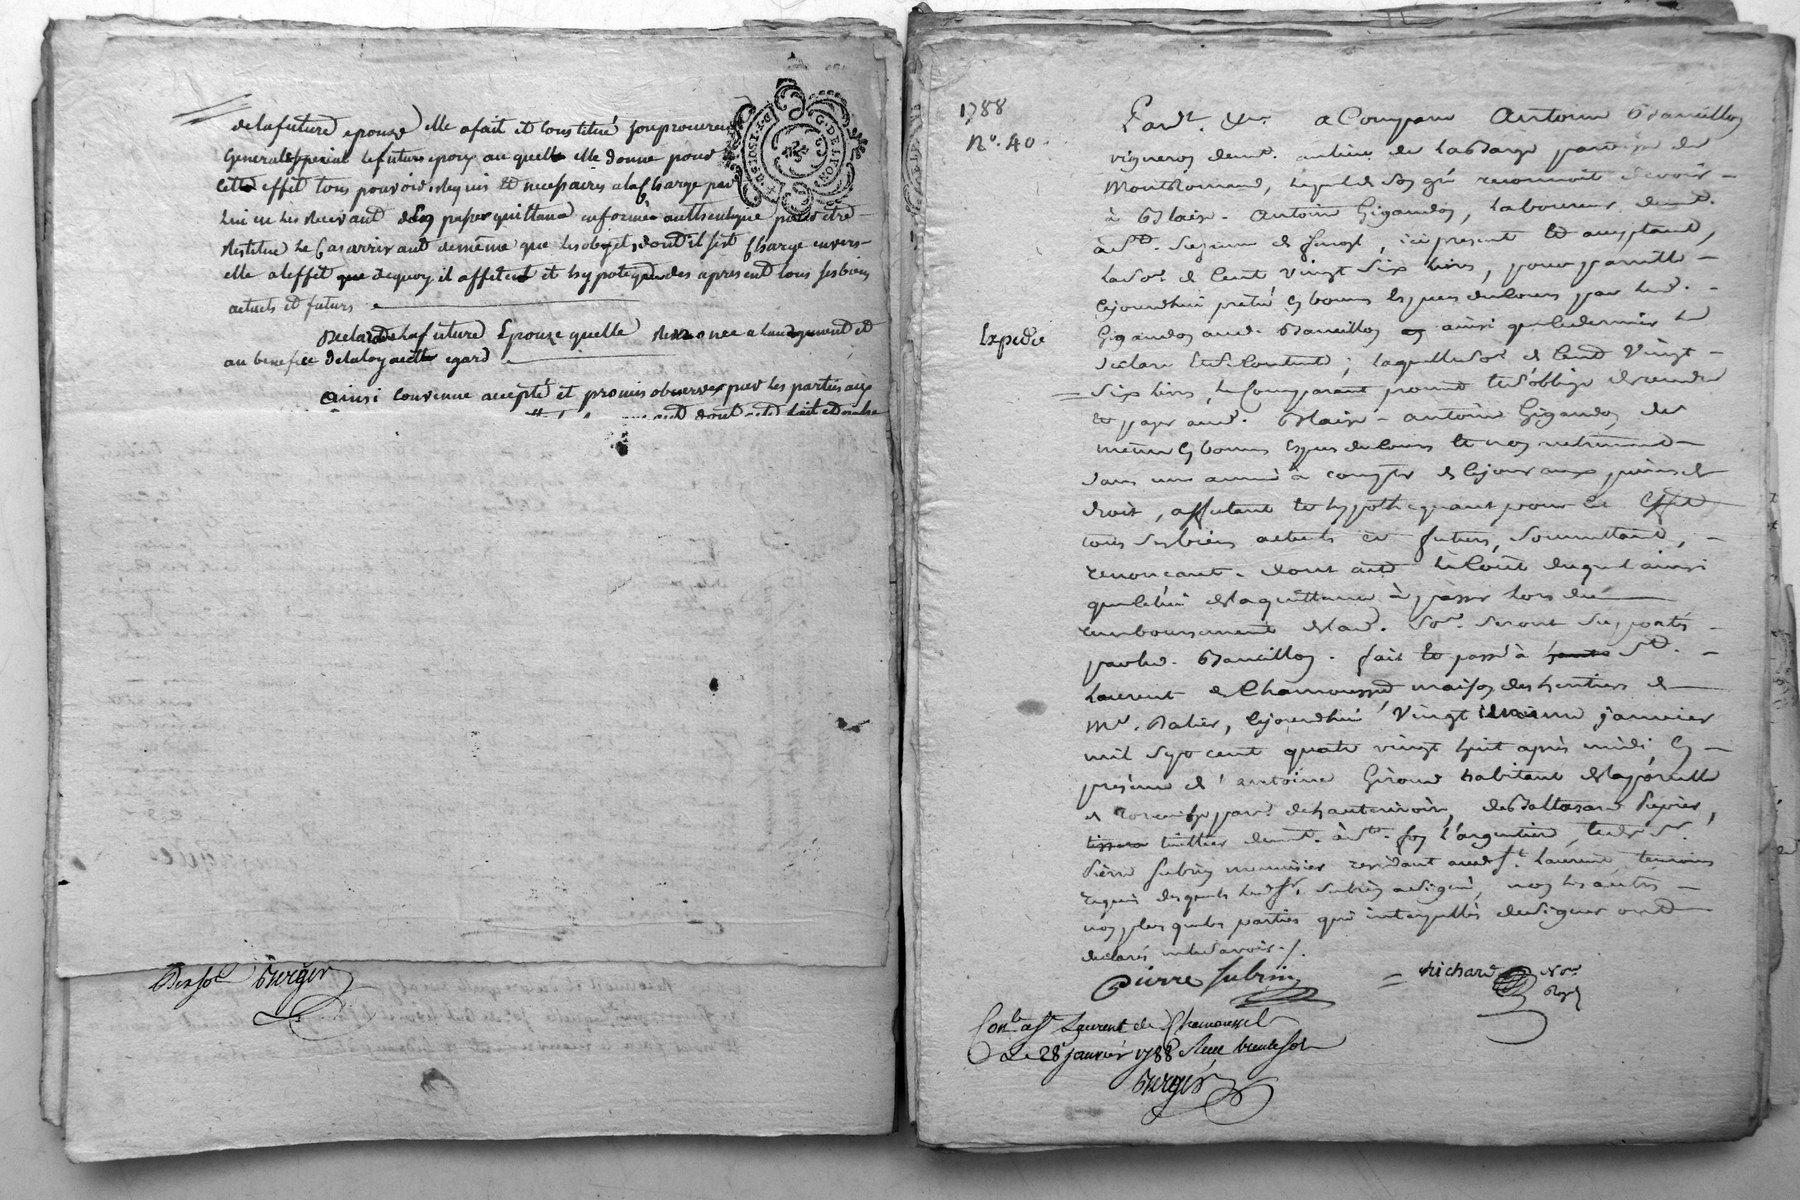 de la future epouze elle a fait et constitué son procureur
General & special le futur epoux au quelle elle donne pour
cette effit tous pouvoirs requis et necessaires a la charge par
lui en les recevant d'en passer quittance en forme authentique pour etre
restitué le cas arrivant de meme que les objets dont il s'est chargé envers
elle a l'effit de quoy il affitent et hypotequendes apresent tous ses biens
actuels et futurs
Declare la future Epouze quelle renonce a laugment et
au benefice de la loy a cette egard
Ainsi convenue accepté et promis observer par les parties aux
dont acte fait et
Berger
G. DE LYON
1788
N.º 40.
Expedié
Pardt. &c. a Comparu Antoine Bancillon
vigneron demt. au lieu de la Barge paroisse de
Montromand, lequel de son gré reconnoit devoir
à Blaise-Antoine Gigandon, laboureur demt.
à St. de , ici present et acceptant,
la som. de cent vingt six livres, pour pareille
cejourdhui pretée en bonnes Especes du Cours par led.
Gigandon aud. Bancillon ainsi que ce dernier le
declare et s'en contente ; laquelle som. de cent Vingt
six livres, le Comparant promet et s'oblige de rendre
et payer aud. Blaise-antoine Gigandon de
meme en bonnes Especes du Cours et non autrement
dans une année à compter de ce jour aux peines de
droit, affectant et hypothequant pour cet Effet
tous ses biens actuels et futurs, soumettant,
renoncant. dont acte le Coût duquel ainsi
que celui de la quittance à passer lors du
remboursement de lad. som. seront supportés
par led. Bancillon. fait et passé à St.
Laurent de Chamousset maison des heritiers de
Mr. Balier, cejourdhui Vingt janvier
mil sept cent quatre vingt huit après midi, En
présence d'antoine Giroud habitant
de parr. de hauterivoire, de Baltazard Pupier,
tuillier demt. à Ste. foy l'argentiere, et de Sr.
Pierre Subrin menuisier residant aud. St. Laurent, temoins
requis desquels led. Sr. Subrin a signé, non les autres
non plus que les parties qui interpellés de signer ont
declarés ne le savoir./.
Pierre Subrin
Richard Nore. Royal
Con.lé a St. Laurent de Chamousset
Le 28 janvier 1788 Reçu trente sols
Berger